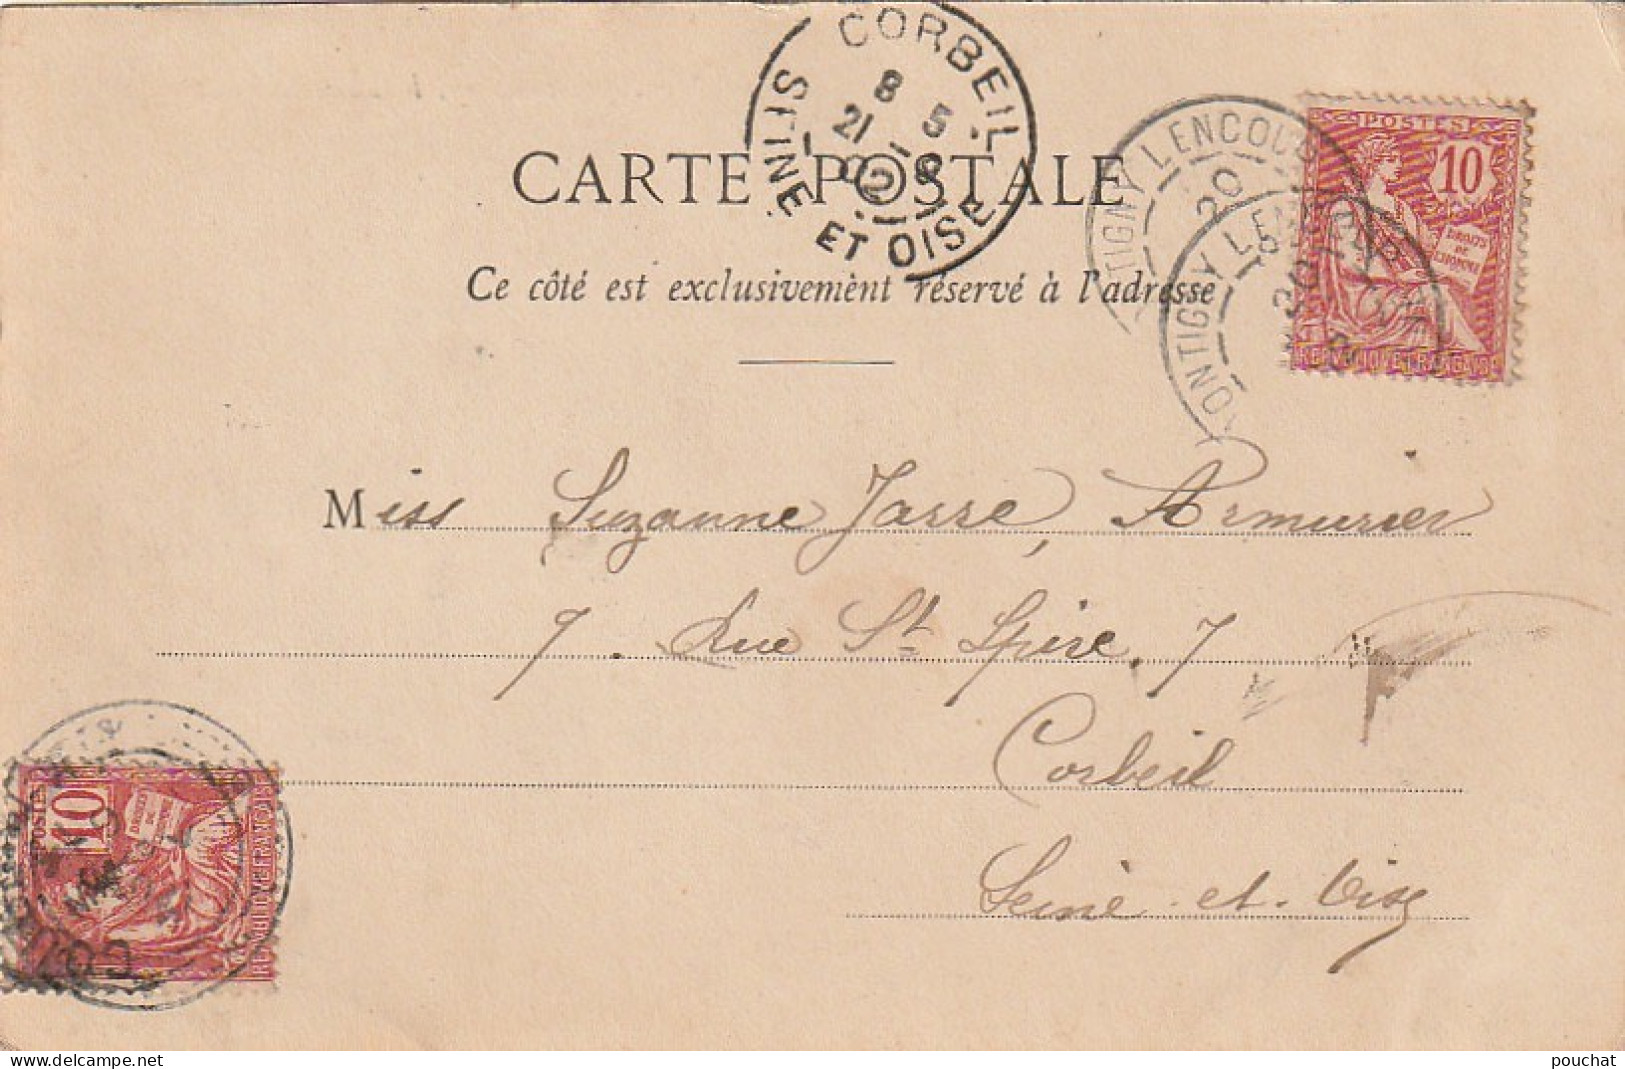 CORBEIL
8 5
21 - 9
02
SEINE ET OISE
CARTE POSTALE
Ce côté est exclusivement réservé à l'adresse
MONTIGNY LENCOUP
20
MONTIGNY LEN
20
POSTES
10
DROITS
DE
L'HOMME
REPUBLIQUE FRANÇAISE
Miss Suzanne Jarre, Armurier
7. Rue St Spire. 7
Corbeil
Seine-et-Oise
POSTES
10
DROITS
DE
L'HOMME
REPUBLIQUE FRANÇAISE
www.delcampe.net
pouchat